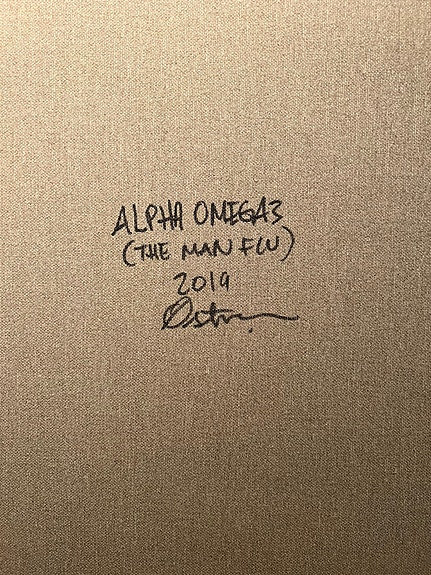 ALPHA OMEGA3
(THE MAN FLU)
2019